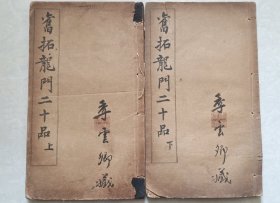 舊拓龍門二十品上
季雲卿藏
舊拓龍門二十品下
季雲卿藏